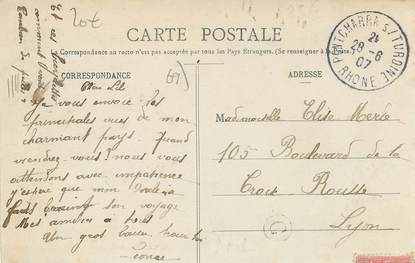 20€
CARTE POSTALE
Correspondance au recto n'est pas acceptée par tous les Pays Etrangers. (Se renseigner à la
CORRESPONDANCE
(69)
ADRESSE
PONTCHARRA S/TURDINE
21
28-8
07
RHONE
Et
Je vous envoie les
principales vues de mon
charmant pays. Quand
viendrez-vous? nous vous
attendons avec impatience
j'espère que mon
son voyage
Mes amitiés à tous
Un gros baiser pour
Mademoiselle Elise Merle
105 Boulevard de la
Croix Rousse
Lyon